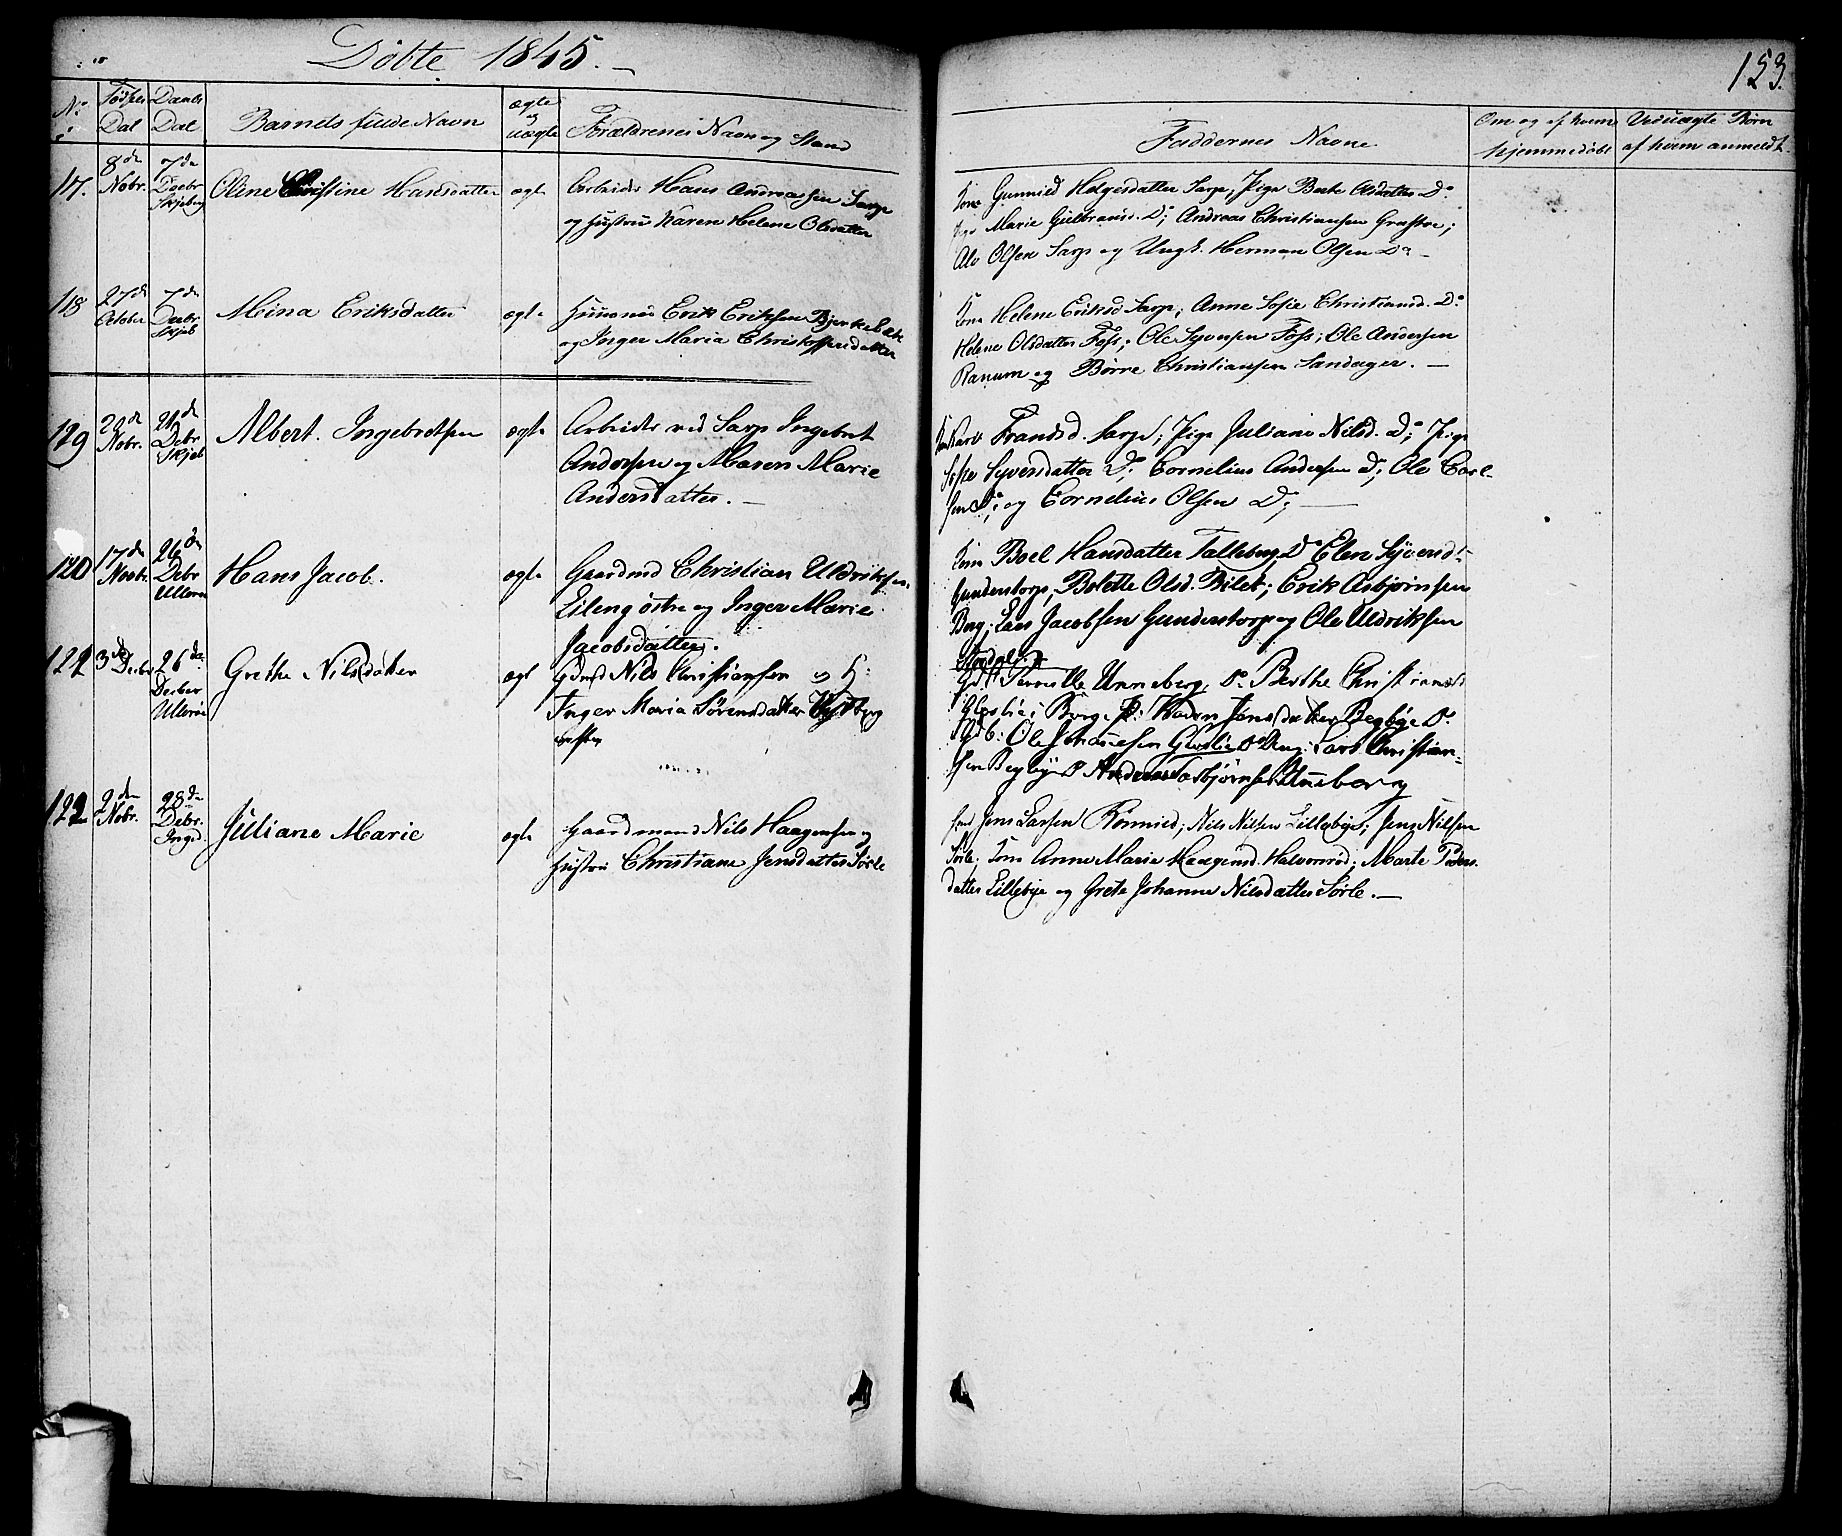 Döbte 1845.
153.
No
Födsels Dal
Daabs Dal
Barnets fulde Navn
ægte og uægte
Forældrenes Navn og Stand
Faddernes Navne
Om og af hvem hjemmedöbt
Ved uægte Börn af hvem anmeldt.
117.
8de Nobr.
7de Decbr Skjeberg
Olene Christine Hansdatter
ægte
Arbeider Hans Andreassen Sarp
og Hustru Karen Helene Olsdatter
Kone Gunnild Helgesdatter Sarp, Pige Berte Olsdatter Do
Pige Marie Gulbransd. Do; Andreas Christiansen
Ole Olsen Sarp og Ungk. Herman Olsen Do
118
27de October
7de Decbr Skjeb
Mina Eriksdatter
ægte
Huusmand Erik Eriksen Bjerkebæk
og Inger Maria Christoffersdatter
Kone Helene Eriksd Sarp, Anne Sofie Christiansd. Do
Helene Olsdatter Foss; Ole Syversen Foss; Ole Andersen
Ranum og Börre Christiansen Sandager.
129
20de Nobr.
21de Debr Skjeb
Albert. Ingebretsen
ægte
Arbeider ved Sarp Ingebret
Andersen og Maren Marie
Andersdatter.
Frandsd. Sarp; Pige Juliane Nilsd. Do; Pige
Sofie Syversdatter Do; Cornelius Andersen Do; Ole Carl-
sen Do; og Cornelius Olsen Do;
120
17de Novbr.
26de Debr Ulleröe
Hans Jacob.
ægte
Gaardmd Christian Uldriksen
Eileng östre og Inger Marie
Jacobsdatter.
Kone Boel Hansdatter Talleberg, Do Elen Syversd
Gunderstorp, Bolette Olsd. Bilet; Erik Asbjørnsen
Berg; Lars Jacobsen Gunderstorp og Ole Uldriksen
121
3de Decbr
26de Decber Ulleröe
Grethe Nilsdatter
ægt
Gdmd Nils Christiansen og H:
Inger Maria Sörensdatter
Unneberg, Do Berthe Christiansd
Karen Jensdatter Begbye Do
Ole Johannesen Do Ung: Lars Christian-
sen Begbye Do Andreas Asbjørnsen Unneberg
122
2de Nobr.
28de Debr. Inged.
Juliane Marie
ægte
Gaardmand Nils Haagensen og
Hustru Christiane Jensdatter Sörle
Jens Larsen Rönnied; Nils Nilsen Lillebye; Jens Nilsen
Sörle; Kone Anne Maria Haagensd. Halvorsröd; Marte
datter Lillebye og Grete Johanne Nilsdatter Sörle.